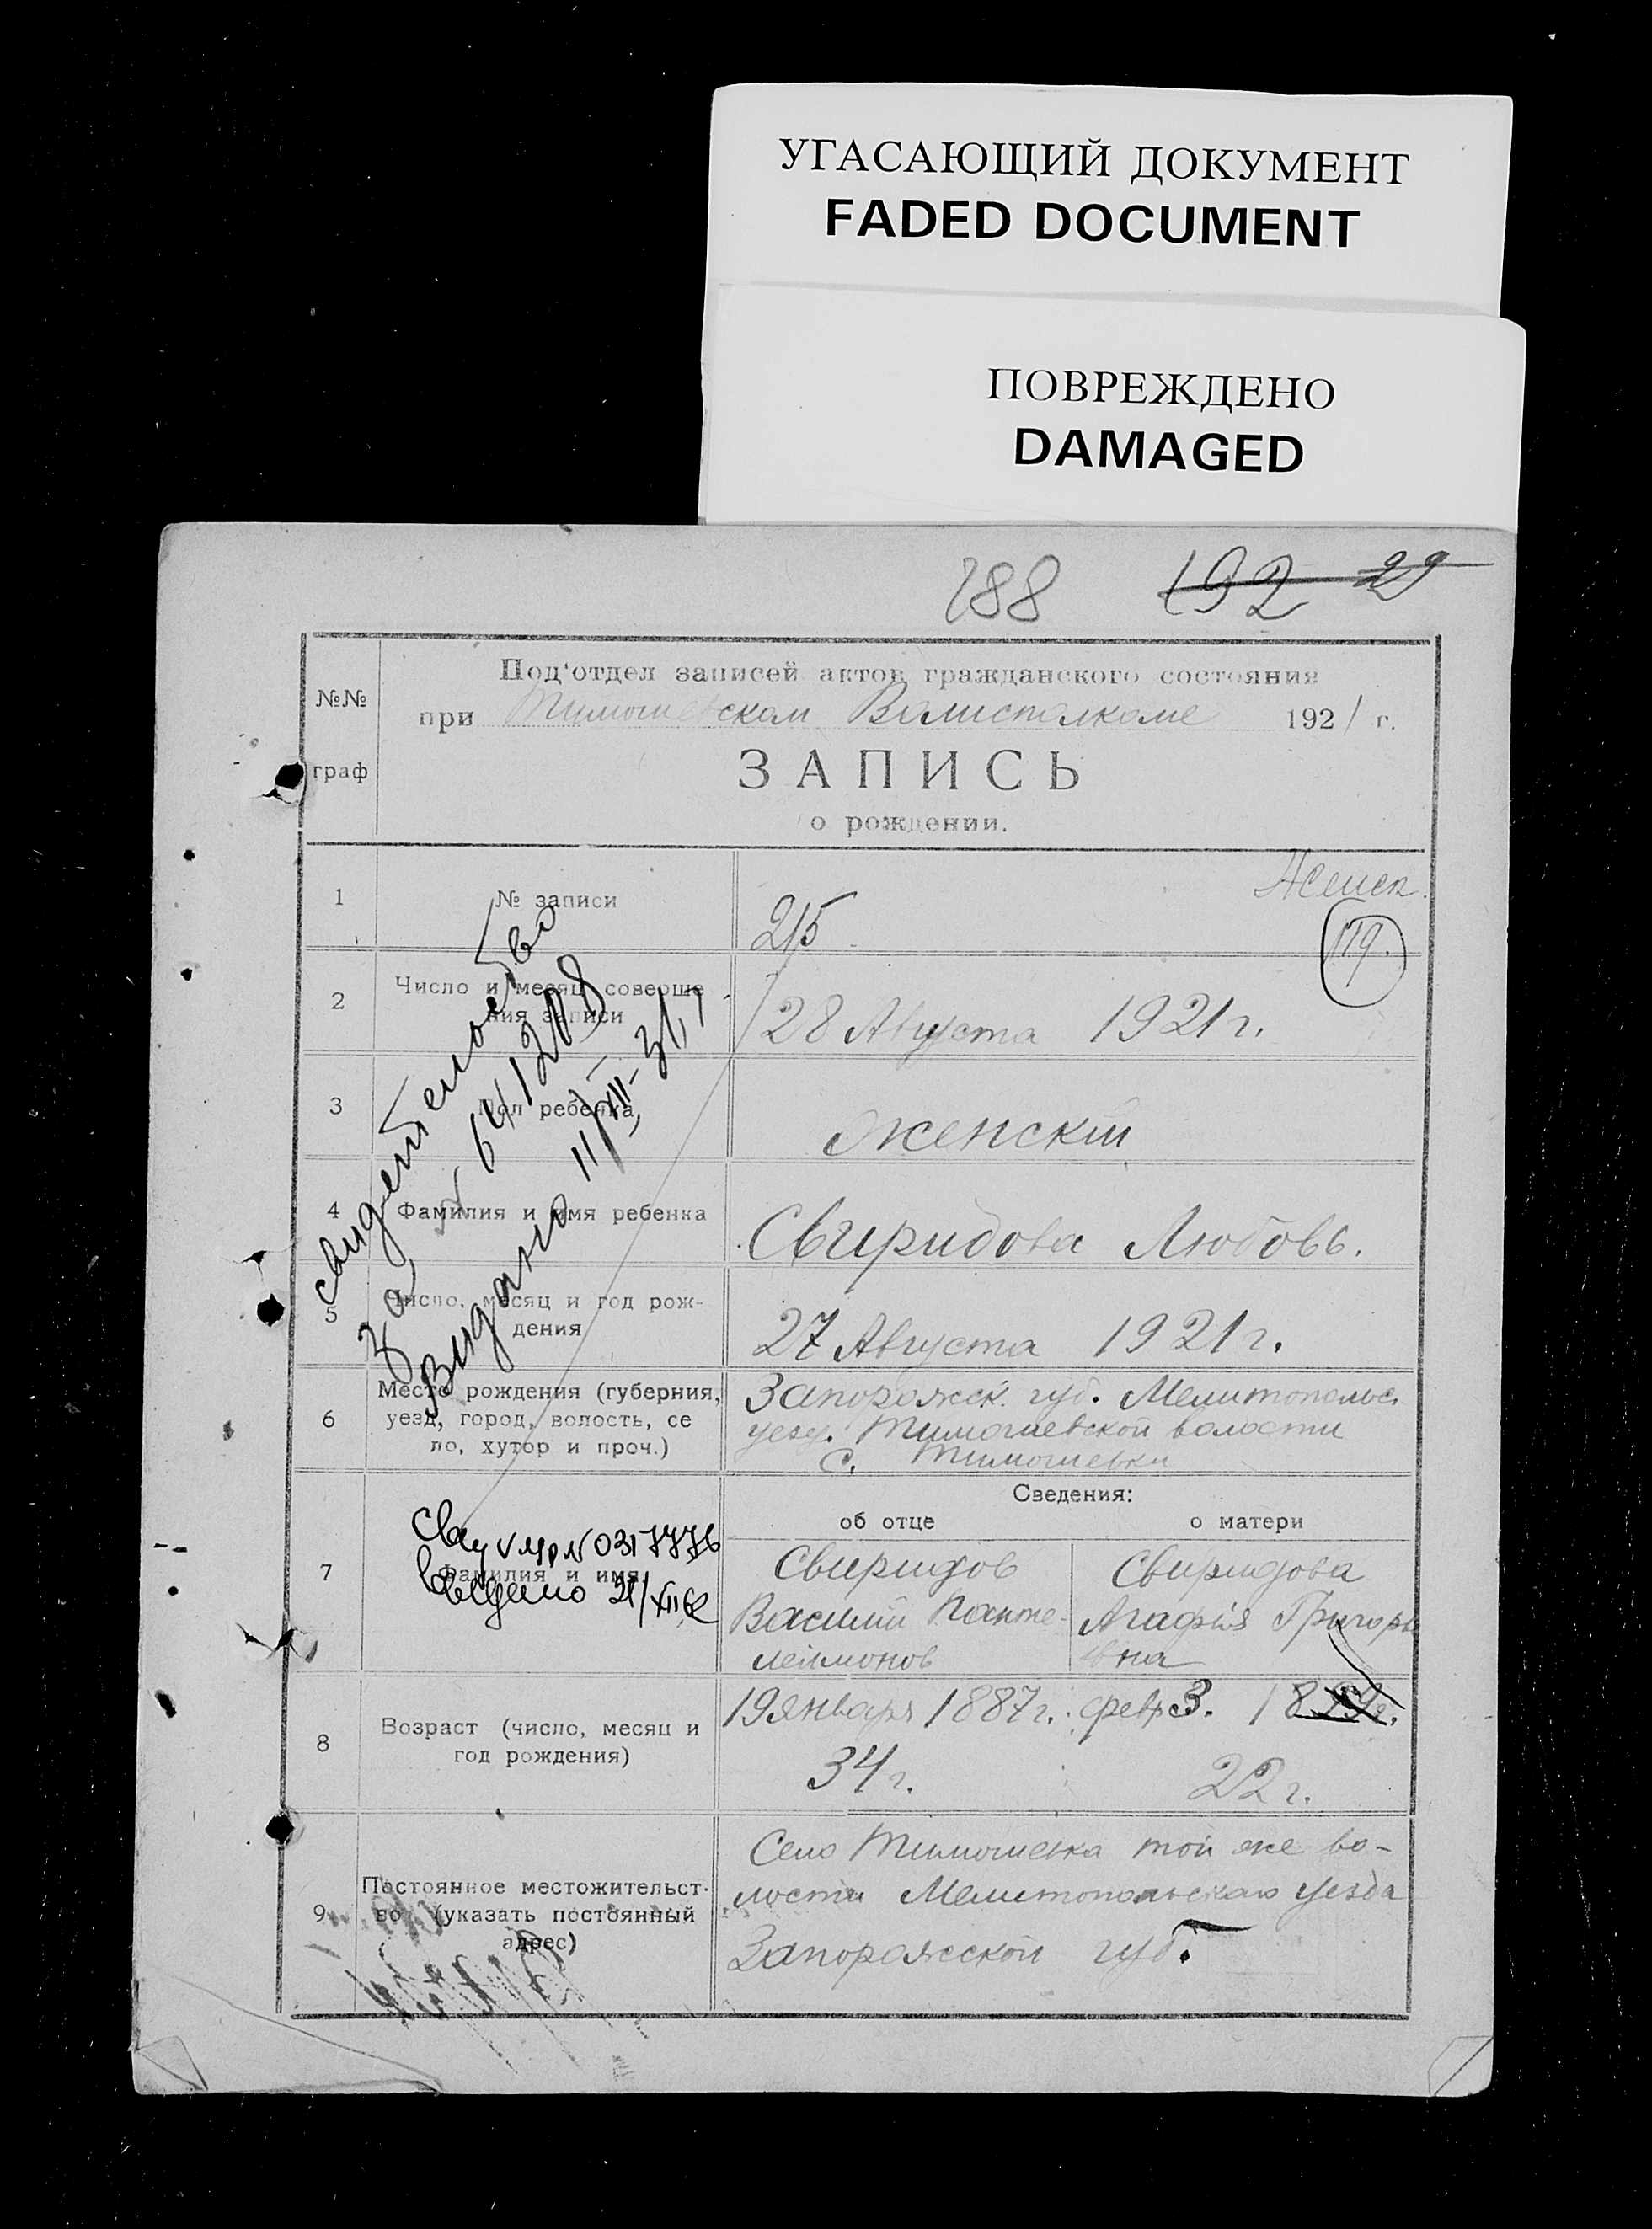 УГАСАЮЩИЙ ДОКУМЕНТ
FADED DOCUMENT
ПОВРЕЖДЕНО
DAMAGED
188 192 29
№№ граф
Под‘отдел записей актов гражданского состояния
при Тимошевском Волисполкоме 1921 г.
ЗАПИСЬ
о рождении.
Женск.
1 № записи 215
119.
2 Число и месяц соверше
ния записи
28 Августа 1921 г.
3 Пол ребенка Женскій
4 Фамилия и имя ребенка Свиридова Любовь.
5 Число, месяц и год рож-
дения
27 Августа 1921 г.
свидетельство
за № 641208
видано 11/VIII-31
6 Место рождения (губерния,
уезд, город, волость, се
ло, хутор и проч.)
Запорожск. губ. Мелитопольс.
уезд. Тимошевской волости
с. Тимошевки
Сведения:
об отце о матери
7 Фамилия и имя
0317776
21/XII 62
Свиридов
Василий Панте-
леимонов
Свиридова
Агафія Григорь
евна
8 Возраст (число, месяц и
год рождения)
19 января 1887 г.
34 г.
февр 3. 18
22 г.
9 Постоянное местожительст-
во (указать постоянный
адрес)
Село Тимошевка той же во-
лости Мелитопольскаго уезда
Запорожской губ.